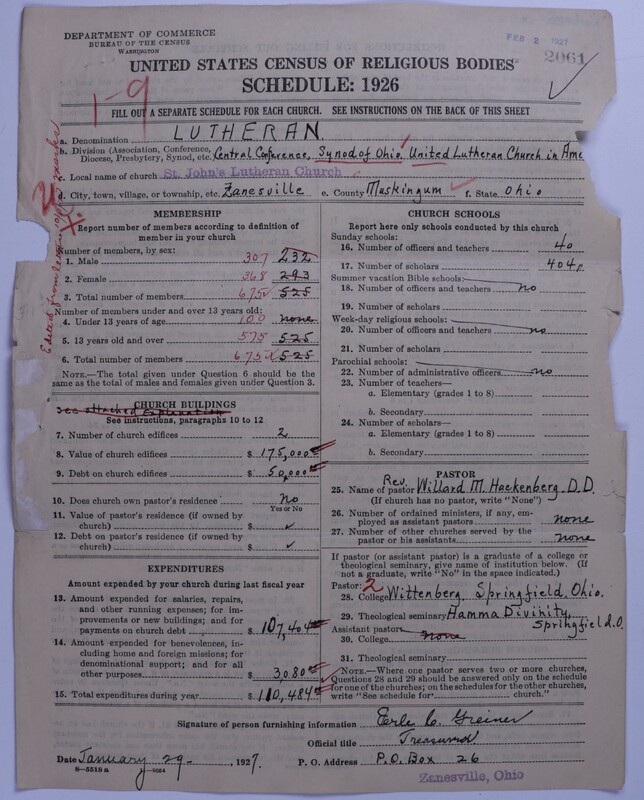 DEPARTMENT OF COMMERCE
BUREAU OF THE CENSUS
WASHINGTON
FEB 2 1927
2061
UNITED STATES CENSUS OF RELIGIOUS BODIES
SCHEDULE: 1926
1-9
FILL OUT A SEPARATE SCHEDULE FOR EACH CHURCH. SEE INSTRUCTIONS ON THE BACK OF THIS SHEET
a. Denomination LUTHERAN.
b. Division (Association, Conference, Diocese, Presbytery, Synod, etc. Central Conference, Synod of Ohio, United Lutheran Church in Ame
c. Local name of church St. John's Lutheran Church
d. City, town, village, or township, etc. Zanesville e. County Muskingum f. State Ohio
MEMBERSHIP
Report number of members according to definition of member in your church
Number of members, by sex:
1. Male 307 232
2. Female 368 293
3. Total number of members 675 525
Number of members under and over 13 years old:
4. Under 13 years of age 100 none
5. 13 years old and over 575 525
6. Total number of members 675 525
NOTE.—The total given under Question 6 should be the same as the total of males and females given under Question 3.
CHURCH BUILDINGS
See attached Explanation
See instructions, paragraphs 10 to 12
7. Number of church edifices 2
8. Value of church edifices $ 175,000
9. Debt on church edifices $ 50,000
10. Does church own pastor's residence no
Yes or No
11. Value of pastor's residence (if owned by church) $ ✓
12. Debt on pastor's residence (if owned by church) $ ✓
EXPENDITURES
Amount expended by your church during last fiscal year
13. Amount expended for salaries, repairs, and other running expenses; for improvements or new buildings; and for payments on church debt $ 107,404
14. Amount expended for benevolences, including home and foreign missions; for denominational support; and for all other purposes $ 3,080
15. Total expenditures during year $ 110,484
CHURCH SCHOOLS
Report here only schools conducted by this church
Sunday schools:
16. Number of officers and teachers 40
17. Number of scholars 404
Summer vacation Bible schools:
18. Number of officers and teachers no
19. Number of scholars
Week-day religious schools:
20. Number of officers and teachers no
21. Number of scholars
Parochial schools:
22. Number of administrative officers no
23. Number of teachers—
a. Elementary (grades 1 to 8)
b. Secondary
24. Number of scholars—
a. Elementary (grades 1 to 8)
b. Secondary
PASTOR
25. Name of pastor Rev. Willard M. Hackenberg, D.D.
(If church has no pastor, write "None")
26. Number of ordained ministers, if any, employed as assistant pastors none
27. Number of other churches served by the pastor or his assistants none
If pastor (or assistant pastor) is a graduate of a college or theological seminary, give name of institution below. (If not a graduate, write "No" in the space indicated.)
Pastor: 2
28. College Wittenberg, Springfield, Ohio.
29. Theological seminary Hamma Divinity, Springfield. O.
Assistant pastor:
30. College none
31. Theological seminary
NOTE.—Where one pastor serves two or more churches, Questions 28 and 29 should be answered only on the schedule for one of the churches; on the schedules for the other churches, write "See schedule for church."
Signature of person furnishing information Erle C. Greiner
Official title Treasurer
Date January 29 , 1927. P. O. Address P.O. Box 26
8—5518 a
Zanesville, Ohio